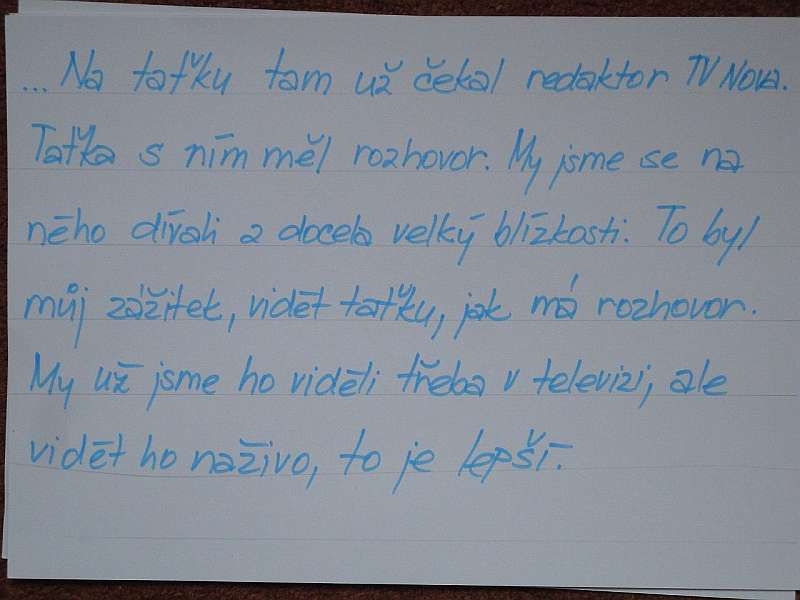 ... Na taťku tam už čekal redaktor TV Nova.
Taťka s ním měl rozhovor. My jsme se na
něho dívali z docela velký blízkosti. To byl
můj zážitek, vidět taťku, jak má rozhovor.
My už jsme ho viděli třeba v televizi, ale
vidět ho naživo, to je lepší.